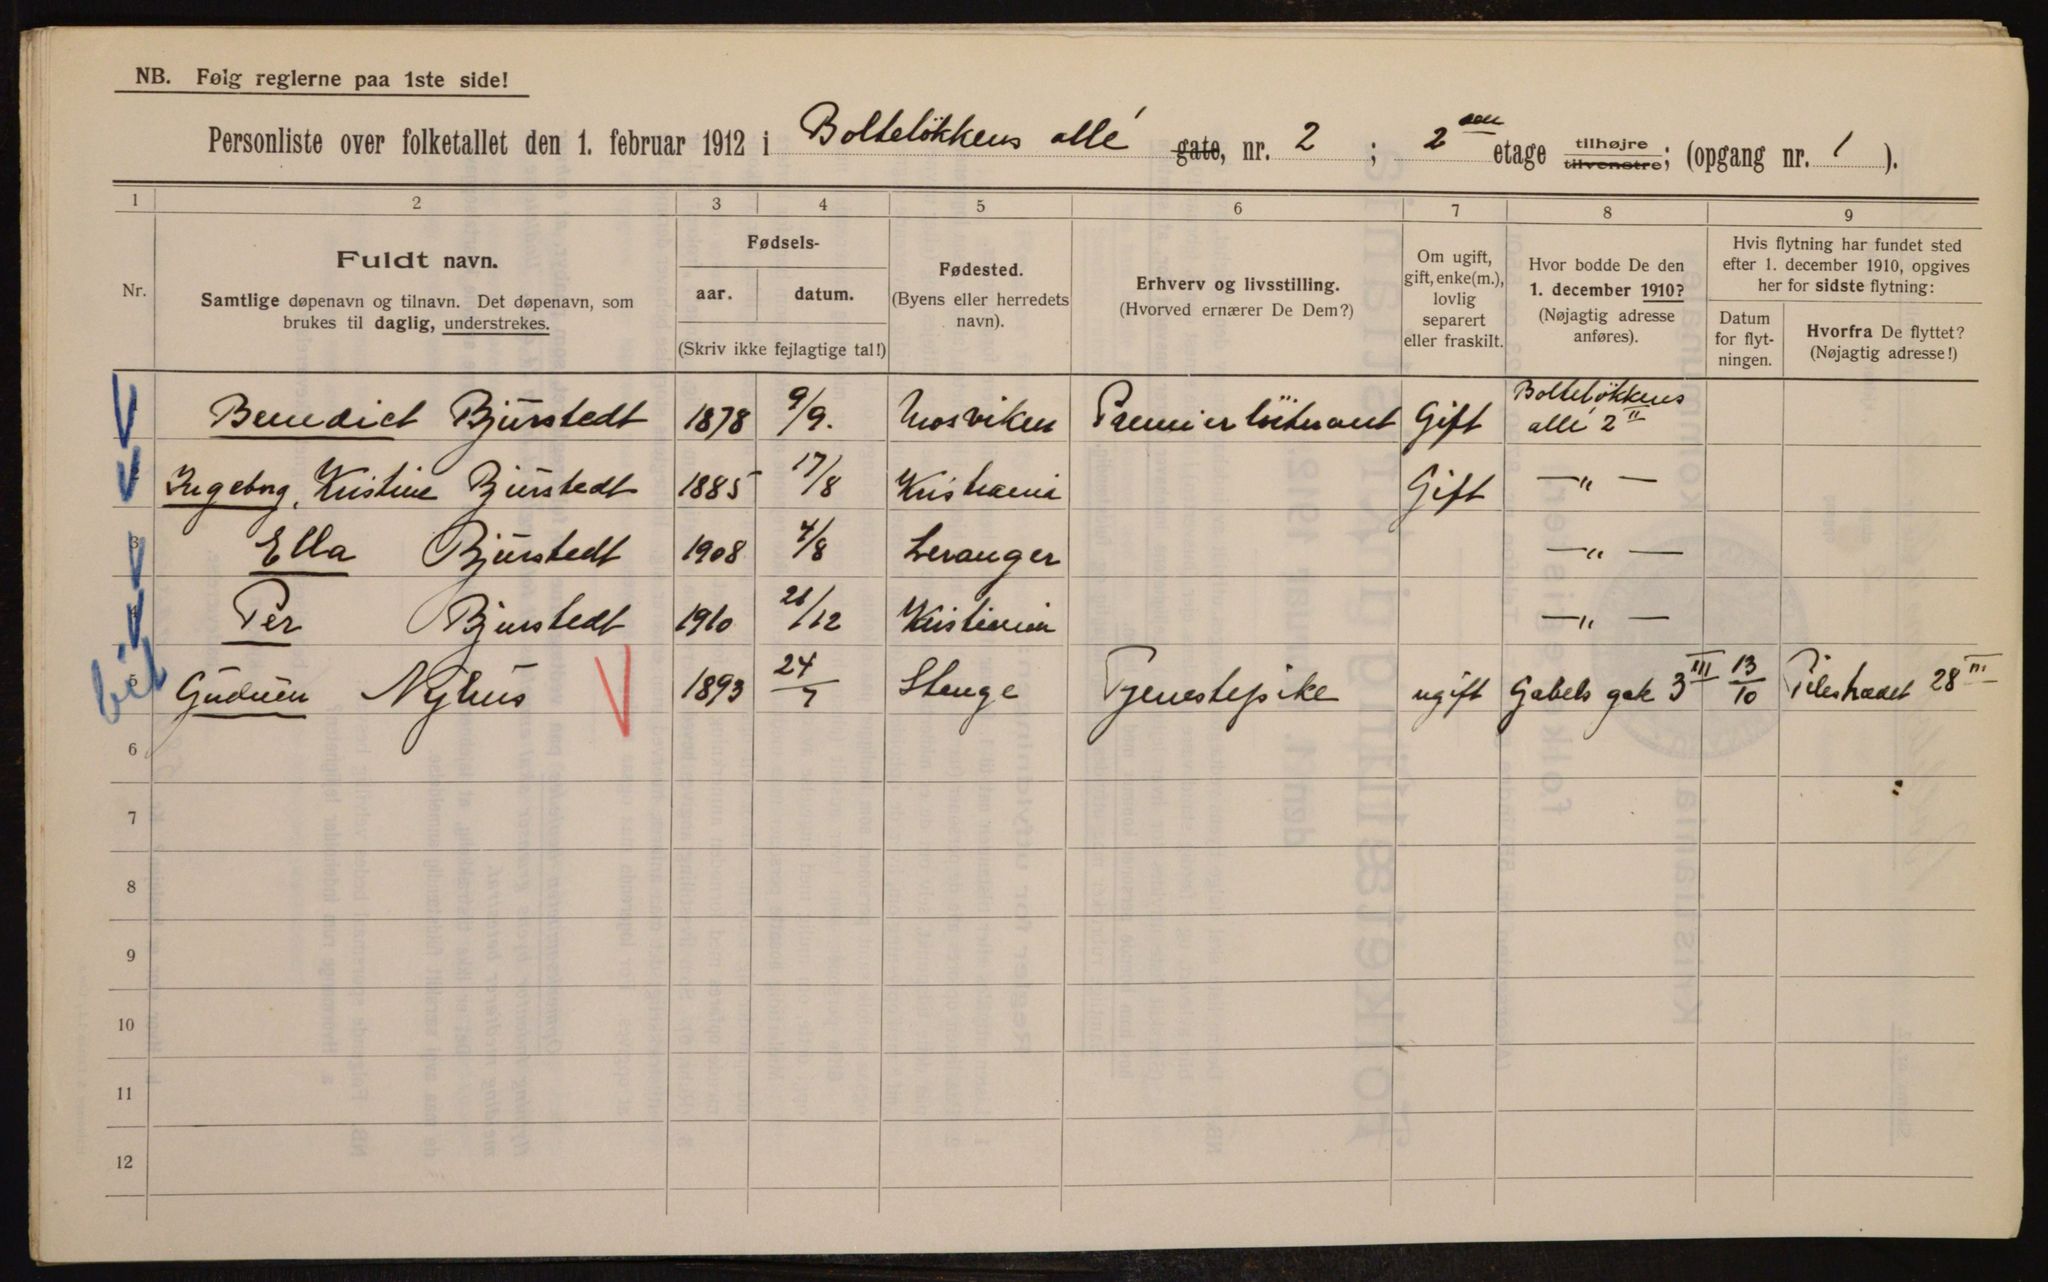 NB. Følg reglerne paa 1ste side!
Personliste over folketallet den 1. februar 1912 i Bolteløkkens allé gate, nr. 2 ; 2den etage tilhøjre tilvenstre; (opgang nr. 1 ).
1 2 3 4 5 6 7 8 9
Nr.
Fuldt navn.
Samtlige døpenavn og tilnavn. Det døpenavn, som
brukes til daglig, understrekes.
Fødsels-
aar. datum.
(Skriv ikke fejlagtige tal!)
Fødested.
(Byens eller herredets
navn).
Erhverv og livsstilling.
(Hvorved ernærer De Dem?)
Om ugift,
gift, enke(m.),
lovlig
separert
eller fraskilt.
Hvor bodde De den
1. december 1910?
(Nøjagtig adresse
anføres).
Hvis flytning har fundet sted
efter 1. december 1910, opgives
her for sidste flytning:
Datum
for flyt-
ningen.
Hvorfra De flyttet?
(Nøjagtig adresse!)
Benedict Bjurstedt 1878 9/9. Mosviken Premierløitnant Gift Bolteløkkens
allé 2 II
Ingeborg, Kristine Bjurstedt 1885 17/8 Kristiania Gift — „ —
3 Ella Bjurstedt 1908 4/8 Levanger — „ —
Per Bjurstedt 1910 /12 Kristiania — „ —
5 Gudrun Nyhus 1893 24/7 Stange Tjenestepike ugift Gabels gate 3 III 13/10 Pilestrædet 28 III
6
7
8
9
10
11
12